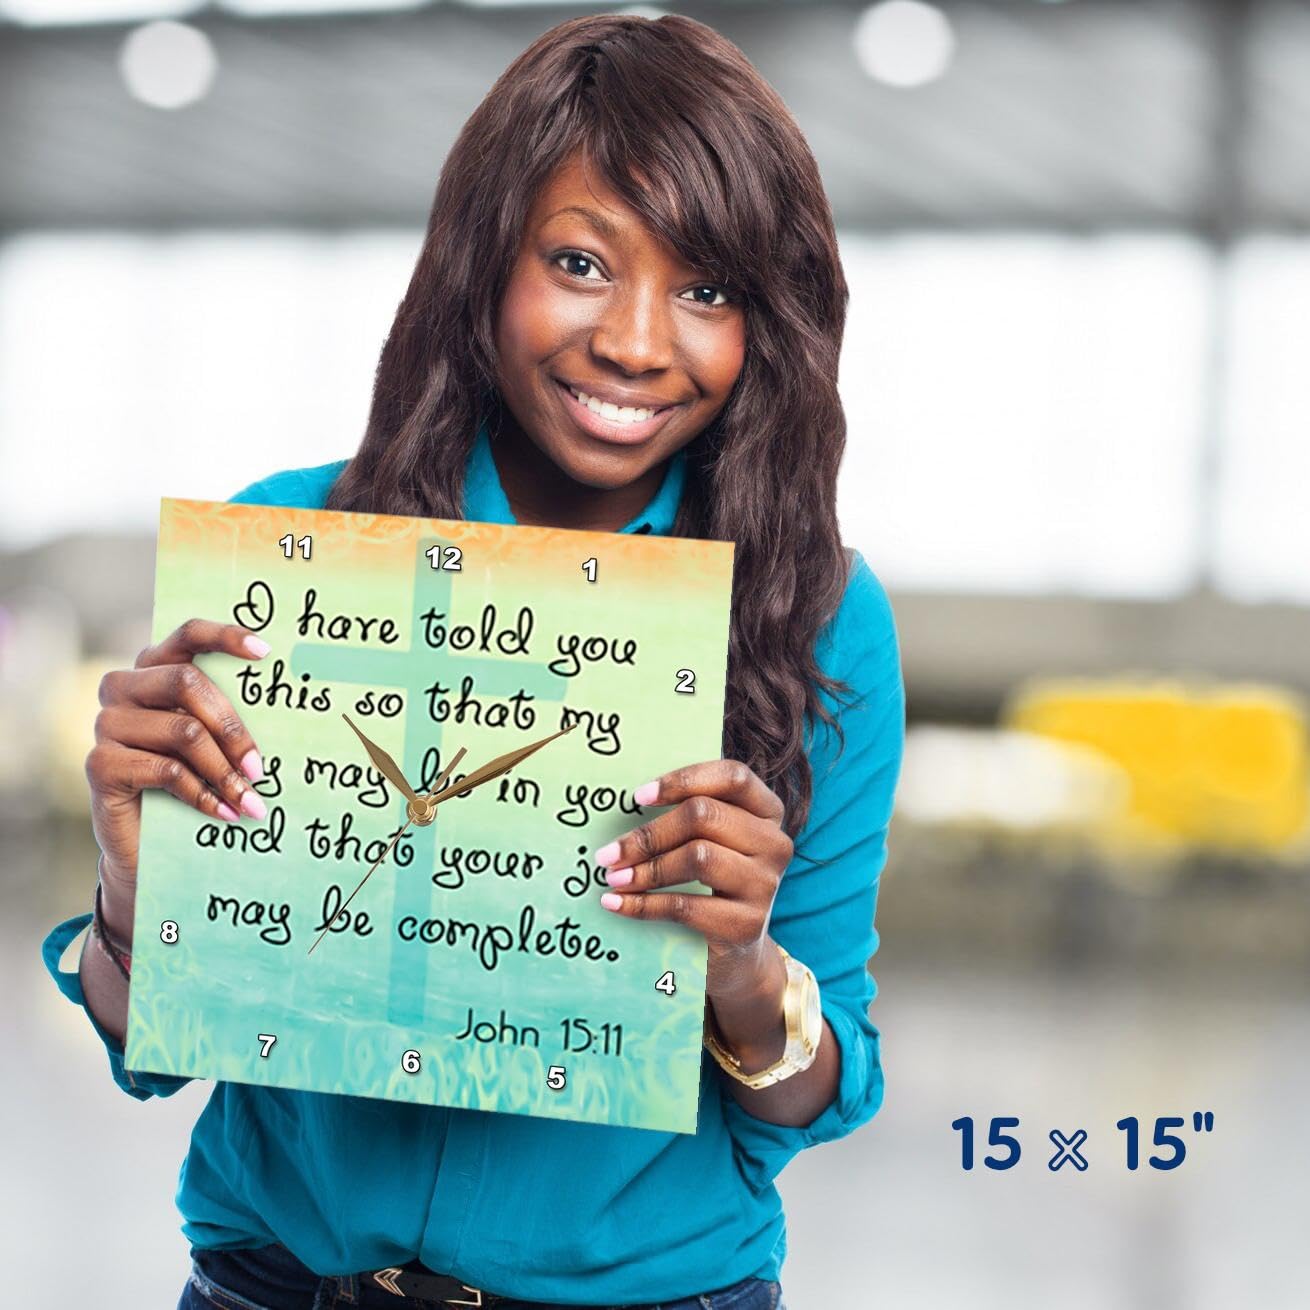 11 12 1
I have told you
2
this so that my
may be in you
and that your
may be complete.
8
4
John 15:11
7 6 5
15 x 15"